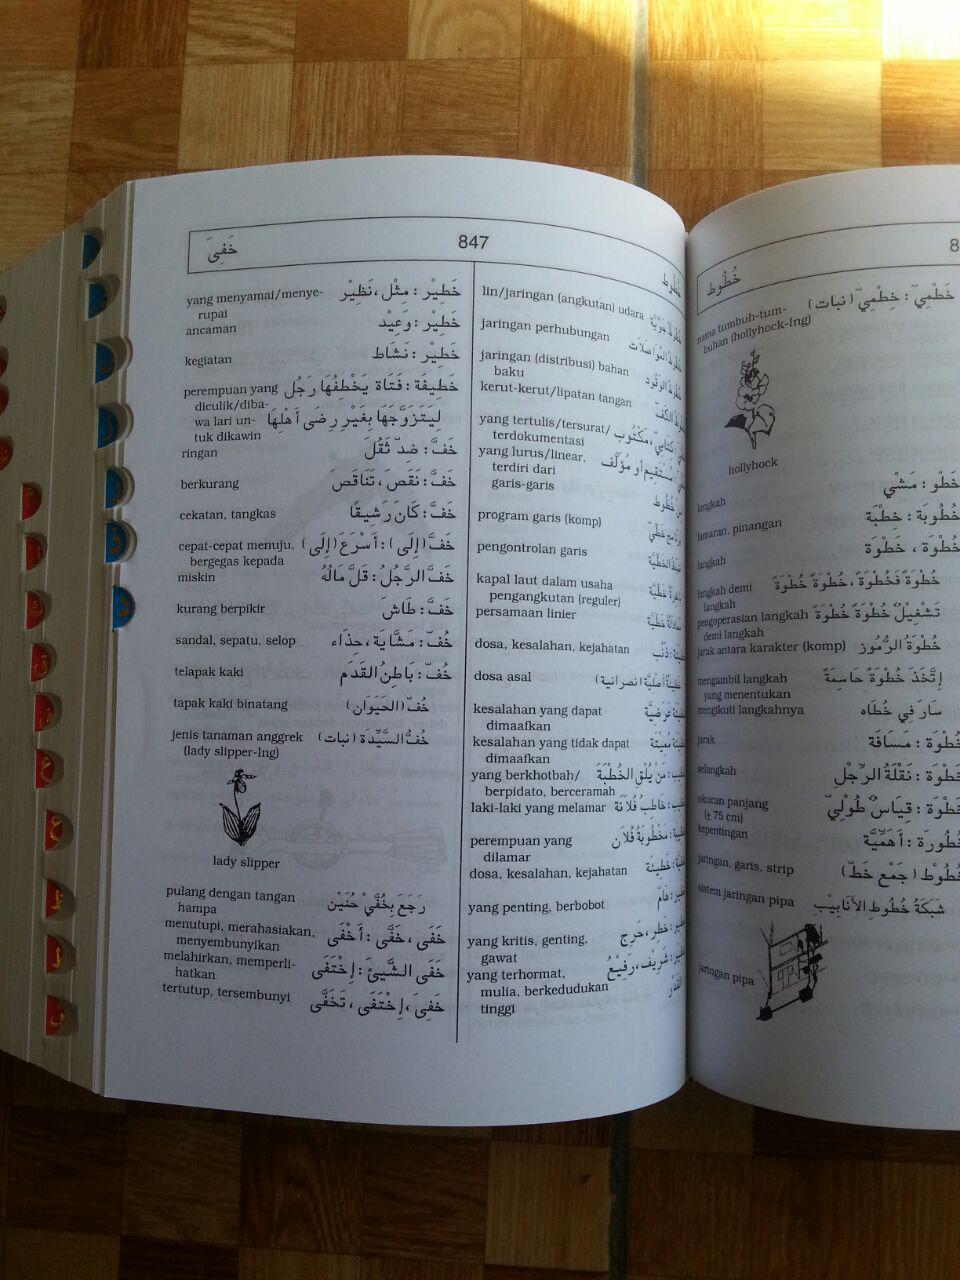 خَفِىَ
847
خُطُوط
yang menyamai/menye-
rupai
خَطِيْر : مِثْل ، نَظِيْر
ancaman
خَطِيْر : وَعِيْد
kegiatan
خَطِيْر : نَشَاط
perempuan yang
خَطِيفَة : فَتَاة يَخْطِفُهَا رَجُل
diculik/diba-
wa lari un-
لِيَتَزَوَّجَهَا بِغَيْرِ رِضَى أَهْلِهَا
tuk dikawin
ringan
خَفَّ : ضِدّ ثَقُلَ
berkurang
خَفَّ : نَقَصَ ، تَنَاقَصَ
cekatan, tangkas
خَفَّ : كَانَ رَشِيقًا
cepat-cepat menuju,
خَفَّ (إِلَى) : أَسْرَعَ (إِلَى)
bergegas kepada
miskin
خَفَّ الرَّجُلُ : قَلَّ مَالُهُ
kurang berpikir
خَفَّ : طَاشَ
sandal, sepatu, selop
خُفّ : مَشَّايَة ، حِذَاء
telapak kaki
خُفّ : بَاطِنُ القَدَم
tapak kaki binatang
خُفّ (الحَيَوَان)
jenis tanaman anggrek
خُفُّ السَّيِّدَة (نبات)
(lady slipper-Ing)
lady slipper
pulang dengan tangan
رَجَعَ بِخُفَّيْ حُنَيْن
hampa
menutupi, merahasiakan,
خَفَى ، خَفَّى : أَخْفَى
menyembunyikan
melahirkan, memperli-
خَفَى الشَّيْئَ : إِخْتَفَى
hatkan
tertutup, tersembunyi
خَفِىَ ، إِخْتَفَى ، تَخَفَّى
lin/jaringan (angkutan) udara
jaringan perhubungan
jaringan (distribusi) bahan
baku
kerut-kerut/lipatan tangan
yang tertulis/tersurat/
terdokumentasi
yang lurus/linear,
terdiri dari
garis-garis
program garis (komp)
pengontrolan garis
kapal laut dalam usaha
pengangkutan (reguler)
persamaan linier
dosa, kesalahan, kejahatan
dosa asal
kesalahan yang dapat
dimaafkan
kesalahan yang tidak dapat
dimaafkan
yang berkhotbah/
مَنْ يُلْقِ الخُطْبَة
berpidato, berceramah
laki-laki yang melamar
خَاطِبُ فُلاَنَة
perempuan yang
مَخْطُوبَةُ فُلاَن
dilamar
dosa, kesalahan, kejahatan
خَطِيئَة
yang penting, berbobot
هَامّ
yang kritis, genting,
خَطَر ، حَرِج
gawat
yang terhormat,
شَرِيف ، رَفِيْعُ
mulia, berkedudukan
القَدْر
tinggi
خُطُوط
nama tumbuh-tum-
خَطْمِيّ : خِطْمِيّ (نبات)
buhan (hollyhock-Ing)
hollyhock
langkah
خَطْو : مَشْي
lamaran, pinangan
خُطُوبَة : خطْبَة
langkah
خُطْوَة ، خَطْوَة
langkah demi
خُطْوَةً فَخُطْوَة ، خُطْوَةً خُطْوَةً
langkah
pengoperasian langkah
تَشْغِيْل خُطْوَةً خُطْوَةً
demi langkah
jarak antara karakter (komp)
خُطْوَةُ الرُّمُوز
mengambil langkah
إِتَّخَذَ خُطْوَةً حَاسِمَةً
yang menentukan
mengikuti langkahnya
سَارَ فِي خُطَاه
jarak
خُطْوَة : مَسَافَة
selangkah
خُطْوَة : نَقْلَةُ الرِّجْل
ukuran panjang
خُطْوَة : قِيَاس طُوْلِيّ
(± 75 cm)
kepentingan
خُطُورَة : أَهَمِّيَّة
jaringan, garis, strip
خُطُوْط (جَمْع خَطّ)
sistem jaringan pipa
شَبَكَةُ خُطُوطِ الأَنَابِيْبِ
jaringan pipa